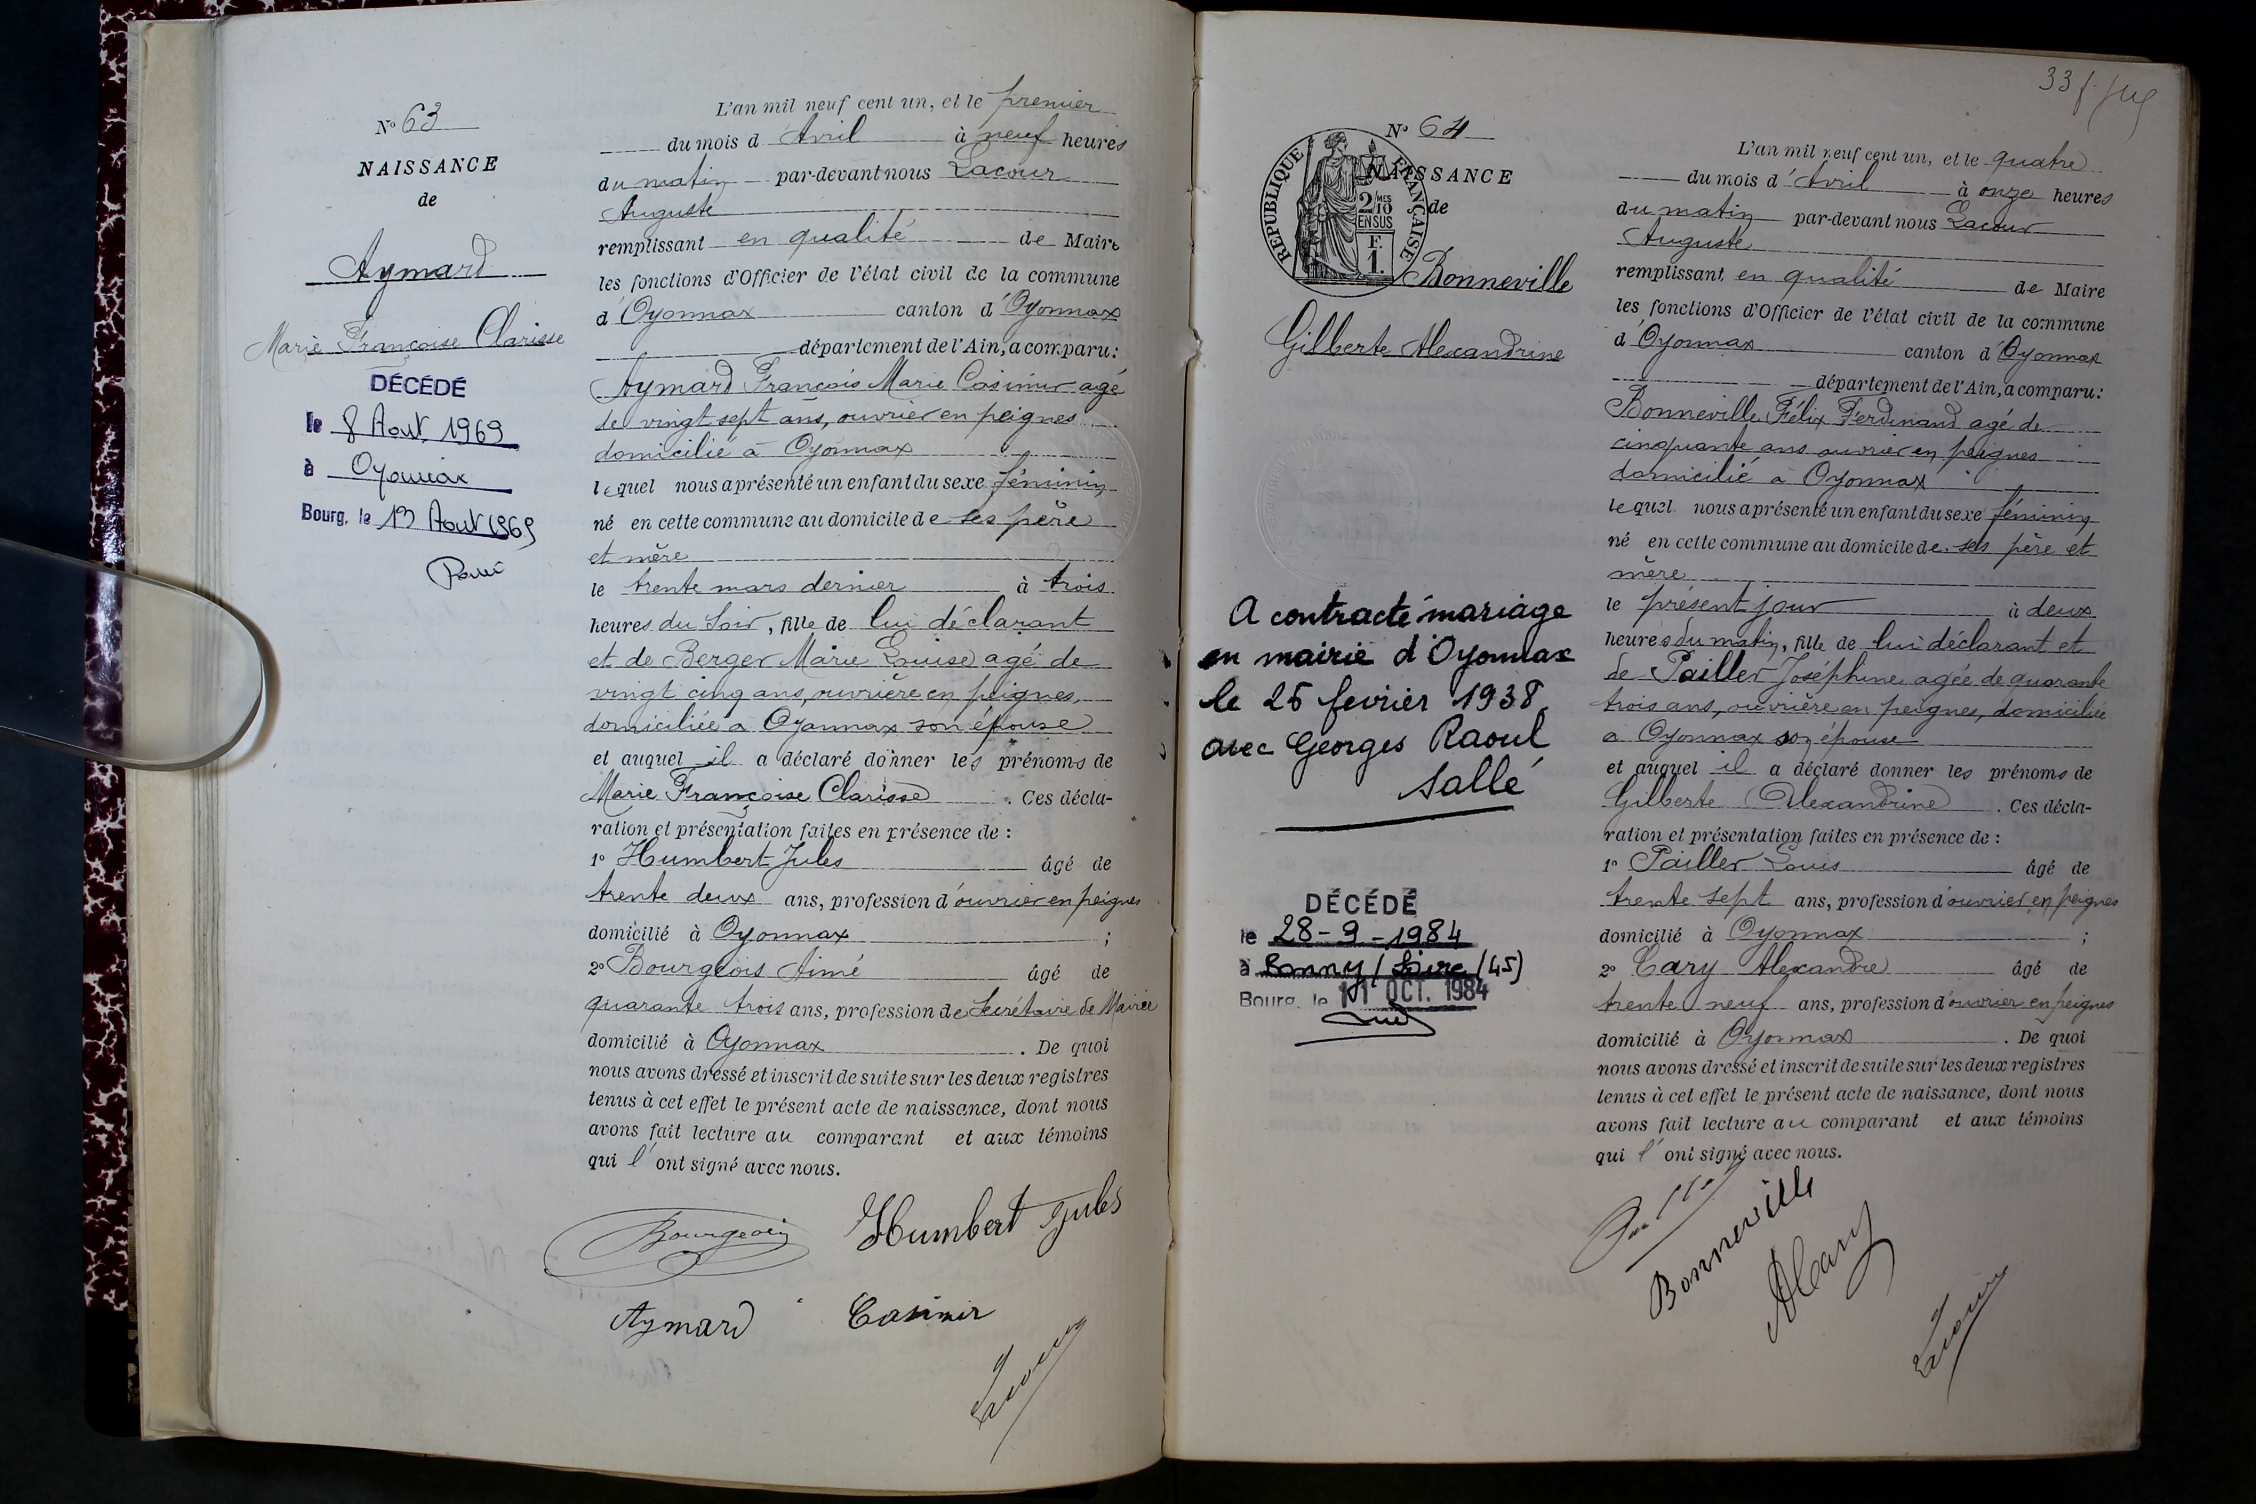 N° 63
NAISSANCE
de
Aymard
Marie Françoise Clarisse
DÉCÉDÉ
le 8 Aout 1969
à Oyonnax
Bourg, le 13 Aout 1969
L'an mil neuf cent un, et le premier
du mois d Avril à neuf heures
du matin par-devant nous Lacour
Auguste
remplissant en qualité de Maire
les fonctions d'Officier de l'état civil de la commune
d'Oyonnax canton d'Oyonnax
département de l'Ain, a comparu:
Aymard François Marie Casimir agé
de vingt sept ans, ouvrier en peignes
domicilié à Oyonnax
lequel nous a présenté un enfant du sexe féminin
né en cette commune au domicile de ses père
et mère
le trente mars dernier à trois
heures du soir, fille de lui déclarant
et de Berger Marie Louise agé de
vingt cinq ans, ouvrière en peignes,
domiciliée à Oyonnax son épouse
et auquel il a déclaré donner les prénoms de
Marie Françoise Clarisse. Ces décla-
ration et présentation faites en présence de :
1° Humbert Jules âgé de
trente deux ans, profession d'ouvrier en peignes
domicilié à Oyonnax ;
2° Bourgeois Aimé âgé de
quarante trois ans, profession de Secrétaire de Mairie
domicilié à Oyonnax. De quoi
nous avons dressé et inscrit de suite sur les deux registres
tenus à cet effet le présent acte de naissance, dont nous
avons fait lecture au comparant et aux témoins
qui l'ont signé avec nous.
Bourgeois Humbert Jules
Aymard Casimir
Lacour
33
N° 64
NAISSANCE
de
RÉPUBLIQUE FRANÇAISE
2/10 MES
EN SUS
F.
1.
Bonneville
Gilberte Alexandrine
A contracté mariage
en mairie d'Oyonnax
le 26 fevrier 1938
avec Georges Raoul
Sallé
DÉCÉDÉ
le 28-9-1984
à Bonny/Loire (45)
Bourg, le 11 OCT. 1984
L'an mil neuf cent un, et le quatre
du mois d'Avril à onze heures
du matin par-devant nous Lacour
Auguste
remplissant en qualité de Maire
les fonctions d'Officier de l'état civil de la commune
d'Oyonnax canton d'Oyonnax
département de l'Ain, a comparu:
Bonneville Félix Ferdinand agé de
cinquante ans ouvrier en peignes
domicilié à Oyonnax
lequel nous a présenté un enfant du sexe féminin
né en cette commune au domicile de ses père et
mère
le présent jour à deux
heures du matin, fille de lui déclarant et
de Pailler Joséphine agée de quarante
trois ans, ouvrière en peignes, domiciliée
à Oyonnax son épouse
et auquel il a déclaré donner les prénoms de
Gilberte Alexandrine. Ces décla-
ration et présentation faites en présence de :
1° Pailler Louis âgé de
trente sept ans, profession d'ouvrier en peignes
domicilié à Oyonnax ;
2° Cary Alexandre âgé de
trente neuf ans, profession d'ouvrier en peignes
domicilié à Oyonnax. De quoi
nous avons dressé et inscrit de suite sur les deux registres
tenus à cet effet le présent acte de naissance, dont nous
avons fait lecture au comparant et aux témoins
qui l'ont signé avec nous.
Bonneville
ACary
Lacour